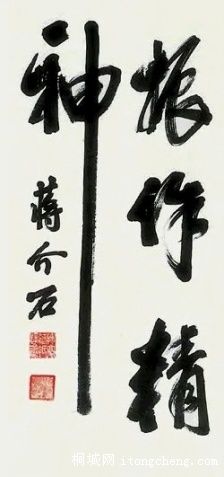 振作精
神
蒋介石
桐城网 itongcheng.com